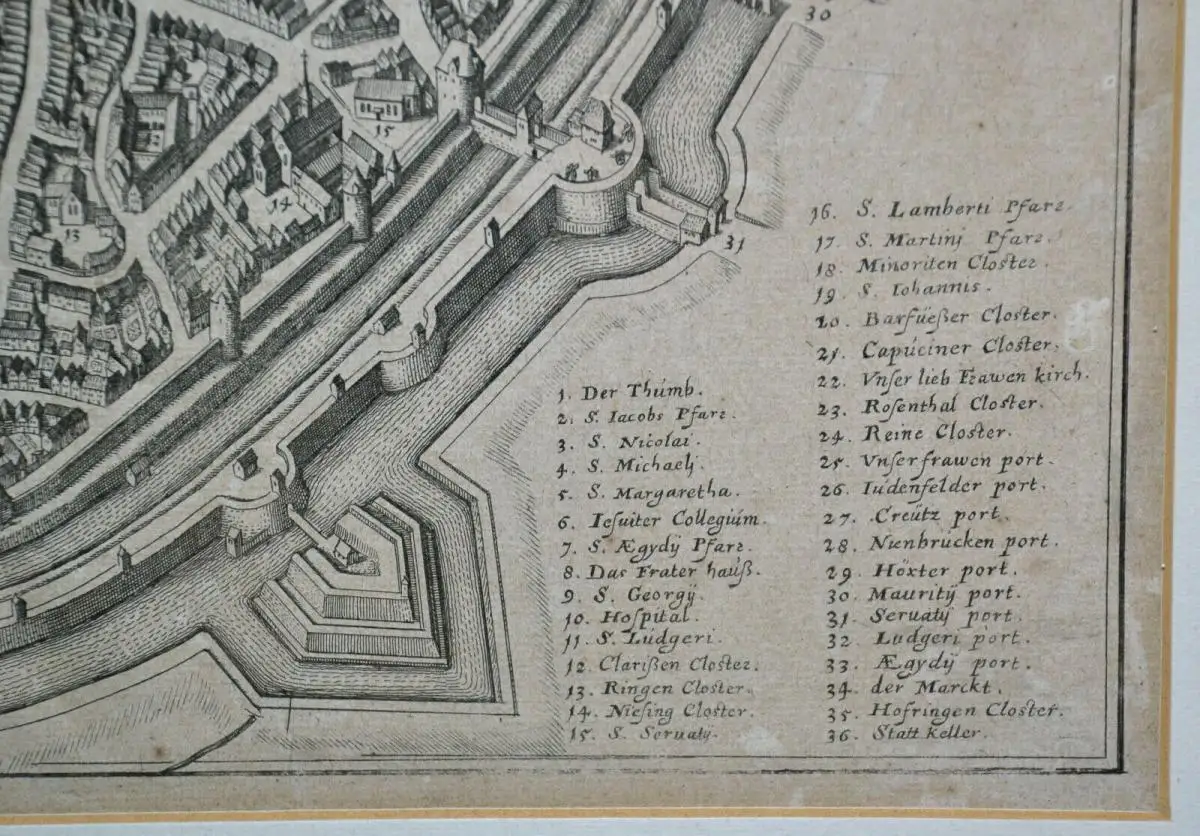 30
15
12
14
13
31
1. Der Thúmb.
2. S. Iacobs Pfarr.
3. S. Nicolai.
4. S. Michaelj.
5. S. Margaretha.
6. Iesuiter Collegiúm.
7. S. Ægydÿ Pfarr.
8. Das Frater haúß.
9. S. Georgÿ.
10. Hoſpital.
11. S. Lúdgeri.
12. Clarißen Closter.
13. Ringen Closter.
14. Nieſing Closter.
15. S. Seruatÿ.
16. S. Lamberti Pfarr.
17. S. Martinj Pfarr.
18. Minoriten Closter.
19. S. Iohannis.
20. Barfúeßer Closter.
21. Capúciner Closter.
22. Vnſer lieb Frawen kirch.
23. Roſenthal Closter.
24. Reine Closter.
25. Vnſerfrawen port.
26. Iúdenfelder port.
27. Creútz port.
28. Nienbrúcken port.
29. Höxter port.
30. Mauritÿ port.
31. Seruatÿ port.
32. Ludgeri port.
33. Ægydÿ port.
34. der Marckt.
35. Hofringen Closter.
36. Statt keller.